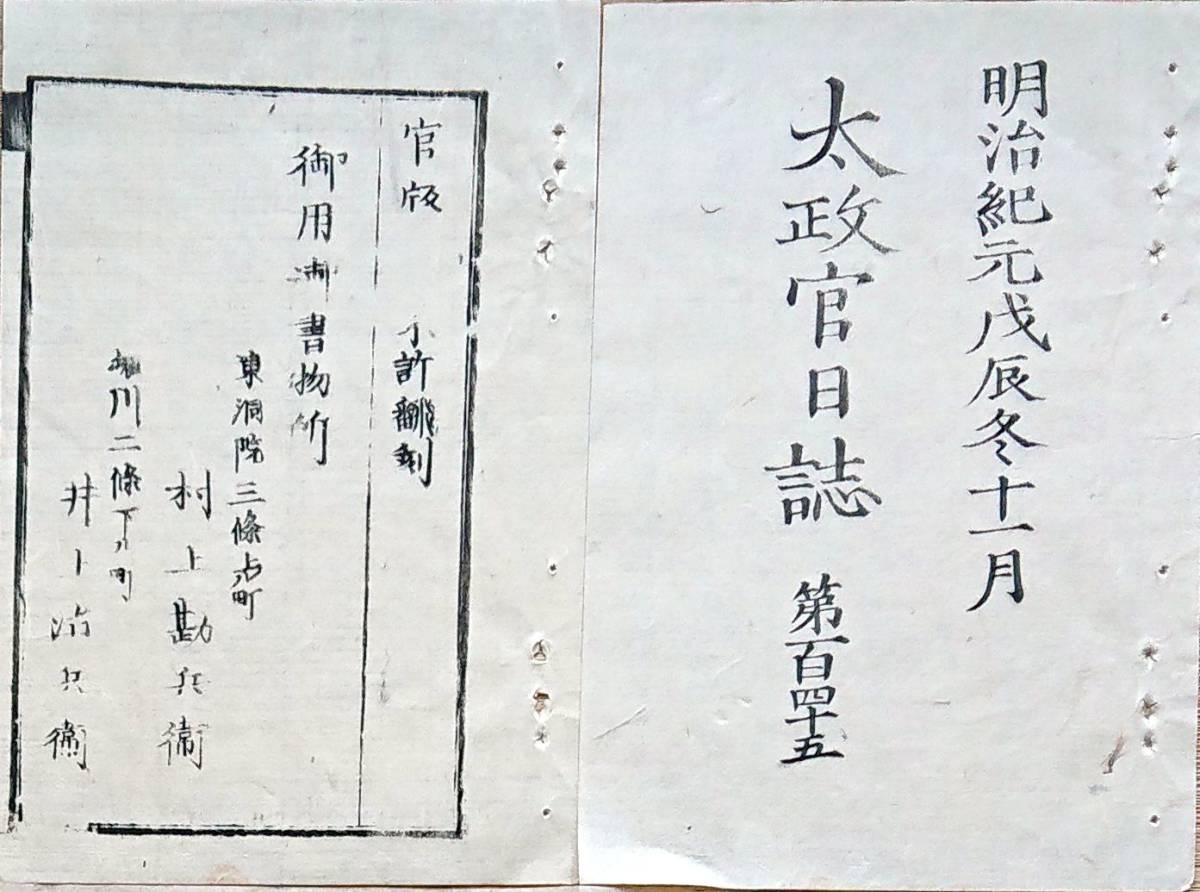 明治紀元戊辰冬十一月
太政官日誌 第百四十五
官版 不許翻刻
御用御書物所
東洞院三條上ル町
村上勘兵衛
堀川二條下ル町
井上治兵衛